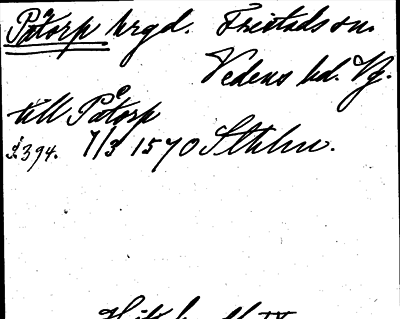 Påtorp hrgd. Fristads sn.
Vedens hd. Vg.
till Påtorp
§394. 7/3 1570 Sthlm.